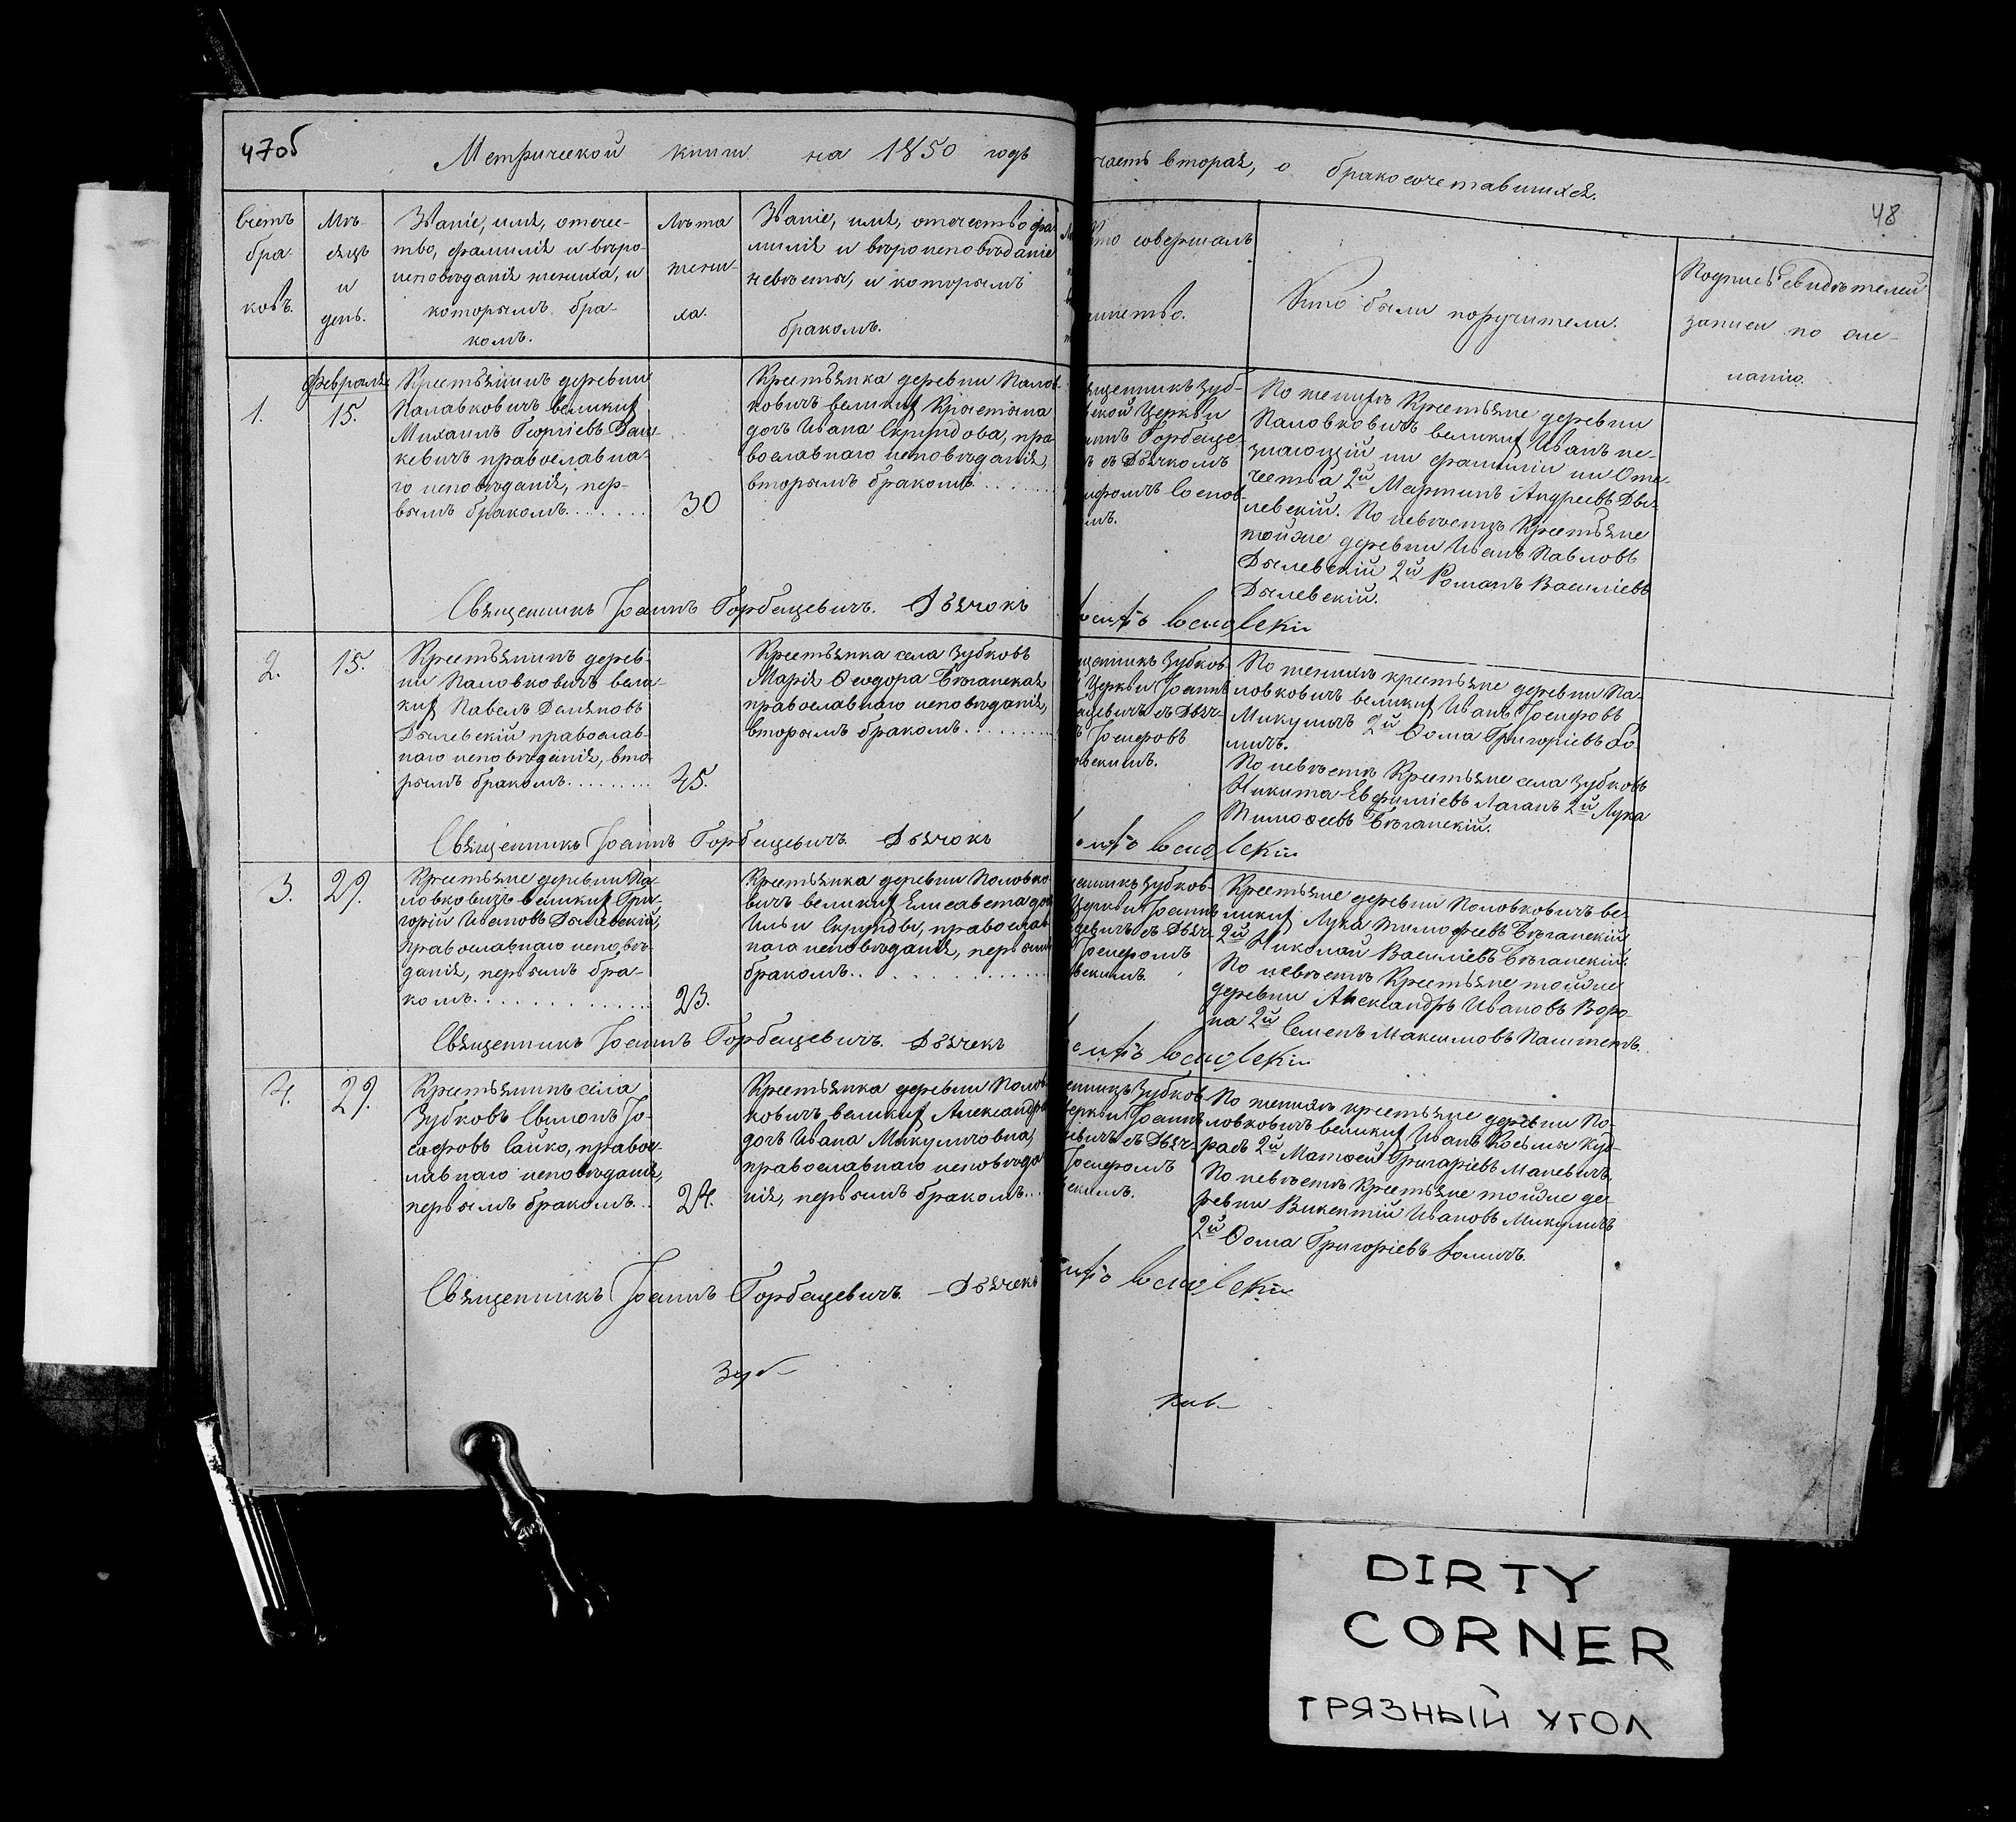 47об
Метрической книги на 1850 годъ
часть вторая, о бракосочетавшихся.
48
Счетъ
бра-
ковъ.
Мѣ-
сяцъ
и
день.
Званіе, имя, отече-
ство, фамилія и вѣро-
исповѣданія жениха, и
которымъ бра-
комъ.
Лѣта
жени-
ха.
Званіе, имя, отечество фа-
милія и вѣроисповѣданіе
невѣсты, и которымъ
бракомъ.
Кто совершалъ
таинство.
Кто были поручители.
Подпись свидѣтелей
записи по же-
ланію.
1.
февраля
15.
Крестьянинъ деревни
Палавковичъ великихъ
Михаилъ Георгіевъ
кевичъ православна-
го исповѣданія, пер-
вымъ бракомъ.......
30
Крестьянка деревни Палов-
ковичъ великихъ Крестьяна
дочь Ивана Скриндова, пра-
вославнаго исповѣданія,
вторымъ бракомъ........
щенникъ Зуб-
ской Церкви
Горбаце-
ъ съ Дьячкомъ
сифомъ Соснов-
мъ.
По женихѣ Крестьяне деревни
Паловковичъ великихъ Иванъ не-
знающій ни фамиліи ни Оте-
чества 2й Мартинъ Андреевъ Ды-
левскій. По невѣстѣ Крестьяне
тойже деревни Иванъ Павловъ
Дылевскій 2й Романъ Василіевъ
Дылевскій.
Священникъ Іоаннъ Горбацевичъ. Дьячокъ
осифъ Сосновскій
2.
15.
Крестьянинъ дерев-
ни Паловковичъ вели-
кихъ Павелъ Демяновъ
Дылевскій православ-
наго исповѣданія, вто-
рымъ бракомъ.........
45.
Крестьянка села Зубковъ
Марія Ѳеодора Бѣганская
православнаго исповѣданія,
вторымъ бракомъ.........
щенникъ Зубков
Церкви Іоаннъ
ацевичъ съ Дьяч-
ъ Іосифовъ
овскимъ.
По женихѣ крестьяне деревни Па-
ловковичъ великихъ Иванъ Іосифовъ
Микуличъ 2й Ѳома Григоріевъ Бо-
личъ.
По невѣстѣ Крестьяне села Зубковъ
Никита Евфиміевъ Лаганъ 2й Лука
Тимоѳеевъ Бѣганскій.
Священникъ Іоаннъ Горбацевичъ. Дьячокъ
сифъ Сосновскій
3.
29.
Крестьяне деревни Па-
ловковичъ великихъ Гри-
горій Ивановъ Дылевскій,
православнаго исповѣ-
данія, первымъ бра-
комъ..............
23.
Крестьянка деревни Половко-
вичъ великихъ Елисавета дочь
Ильи Скриндовы, православ-
наго исповѣданія, первымъ
бракомъ..............
щенникъ Зубков-
Церкви Іоаннъ
цевичъ съ Дьяч-
Іосифомъ
вскимъ.
Крестьяне деревни Половковичъ ве-
ликихъ Лука Тимофеевъ Бѣганскій
2й Николай Василіевъ Бѣганскій.
По невѣстѣ Крестьяне тойже
деревни Александръ Ивановъ Воро-
на 2й Семенъ Максимовъ Паштетъ.
Священникъ Іоаннъ Горбацевичъ. Дьячекъ
сифъ Сосновскій
4.
29.
Крестьянинъ села
Зубковъ Симонъ Іо-
сафовъ Сайко, правос-
лавнаго исповѣданія,
первымъ бракомъ...
24.
Крестьянка деревни Полов-
ковичъ великихъ Александра
дочь Ивана Микуличовна,
православнаго исповѣда-
нія, первымъ бракомъ...
енникъ Зубков
Церкви Іоаннъ
цевичъ съ Дьяч-
Іосифомъ
скимъ.
По женихѣ крестьяне деревни По-
ловковичъ великихъ Иванъ Косьмы Куд-
расъ 2й Матѳей Григаріевъ Маневичъ.
По невѣстѣ Крестьяне тойже де-
ревни Викентій Ивановъ Микуличъ
2й Ѳома Григоріевъ Боличъ.
Священникъ Іоаннъ Горбацевичъ. Дьячекъ
сифъ Сосновскій
Зуб
ков
DIRTY
CORNER
ГРЯЗНЫЙ УГОЛ